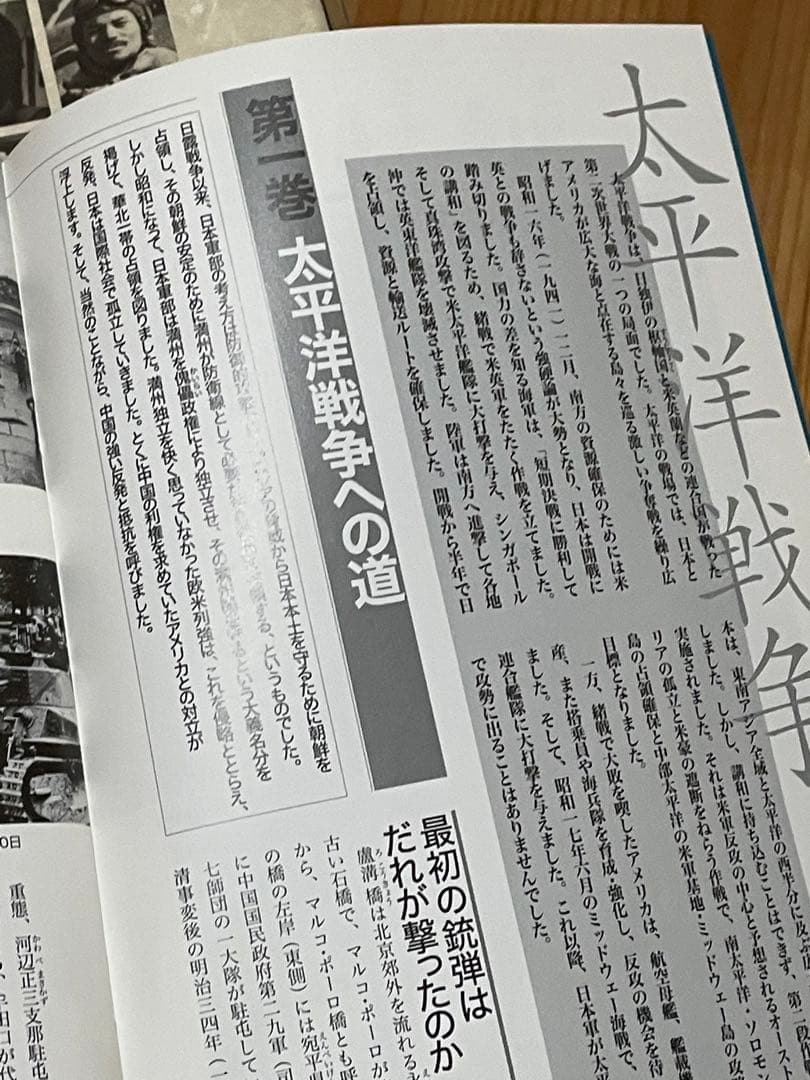 太平洋戦争
太平洋戦争は、日独伊の枢軸国と米英蘭などの連合国が戦った
第二次世界大戦の一つの局面でした。太平洋の戦場では、日本と
アメリカが広大な海と点在する島々を巡る激しい争奪戦を繰り広
げました。
昭和一六年（一九四一）一二月、南方の資源確保のためには米
英との戦争も辞さないという強硬論が大勢となり、日本は開戦に
踏み切りました。国力の差を知る海軍は、「短期決戦に勝利して
の講和」を図るため、緒戦で米英軍をたたく作戦を立てました。
そして真珠湾攻撃で米太平洋艦隊に大打撃を与え、シンガポール
沖では英東洋艦隊を壊滅させました。陸軍は南方へ進撃して各地
を占領し、資源と輸送ルートを確保しました。開戦から半年で日
本は、東南アジア全域と太平洋の西半分に及ぶ
しました。しかし、講和に持ち込むことはできず、第二段
実施されました。それは米軍反攻の中心と予想されるオースト
リアの孤立と米豪の遮断をねらう作戦で、南太平洋・ソロモン
島の占領確保と中部太平洋の米軍基地・ミッドウェー島の攻
目標となりました。
一方、緒戦で大敗を喫したアメリカは、航空母艦、艦載機
産、また搭乗員や海兵隊を育成・強化し、反攻の機会を待
ました。そして、昭和一七年六月のミッドウェー海戦で、
連合艦隊に大打撃を与えました。これ以降、日本軍が太
で攻勢に出ることはありませんでした。
第一巻 太平洋戦争への道
日露戦争以来、日本軍部の考え方は防御的
アジアの脅威から日本本土を守るために朝鮮を
占領し、その朝鮮の安定のために満州が防衛線として必要
する、というものでした。
しかし昭和になって、日本軍部は満州を傀儡政権により独立させ、その
という大義名分を
掲げて、華北一帯の占領を図りました。満州独立を快く思っていなかった欧米列強は、これを侵略ととらえ、
反発、日本は国際社会で孤立していきました。とくに中国の利権を求めていたアメリカとの対立が
浮上します。そして、当然のことながら、中国の強い反発と抵抗を呼びました。
最初の銃弾は
だれが撃ったのか
盧溝橋は北京郊外を流れる永
古い石橋で、マルコ・ポーロが
から、マルコ・ポーロ橋とも呼
の橋の左岸（東側）には宛平県
に中国国民政府第二九軍（司
七師団の一大隊が駐屯して
清事変後の明治三四年（一
0日
重態、河辺正三支那駐屯